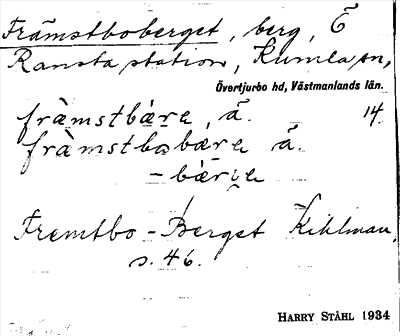 Främstboberget, berg, Ö
Ransta station, Kumla sn,
Övertjurbo hd, Västmanlands län.
fràmstbère, ä. 14.
fràmstbobære ä.
-bærie
Fremtbo-Berget Kihlman,
s. 46.
HARRY STÅHL 1934